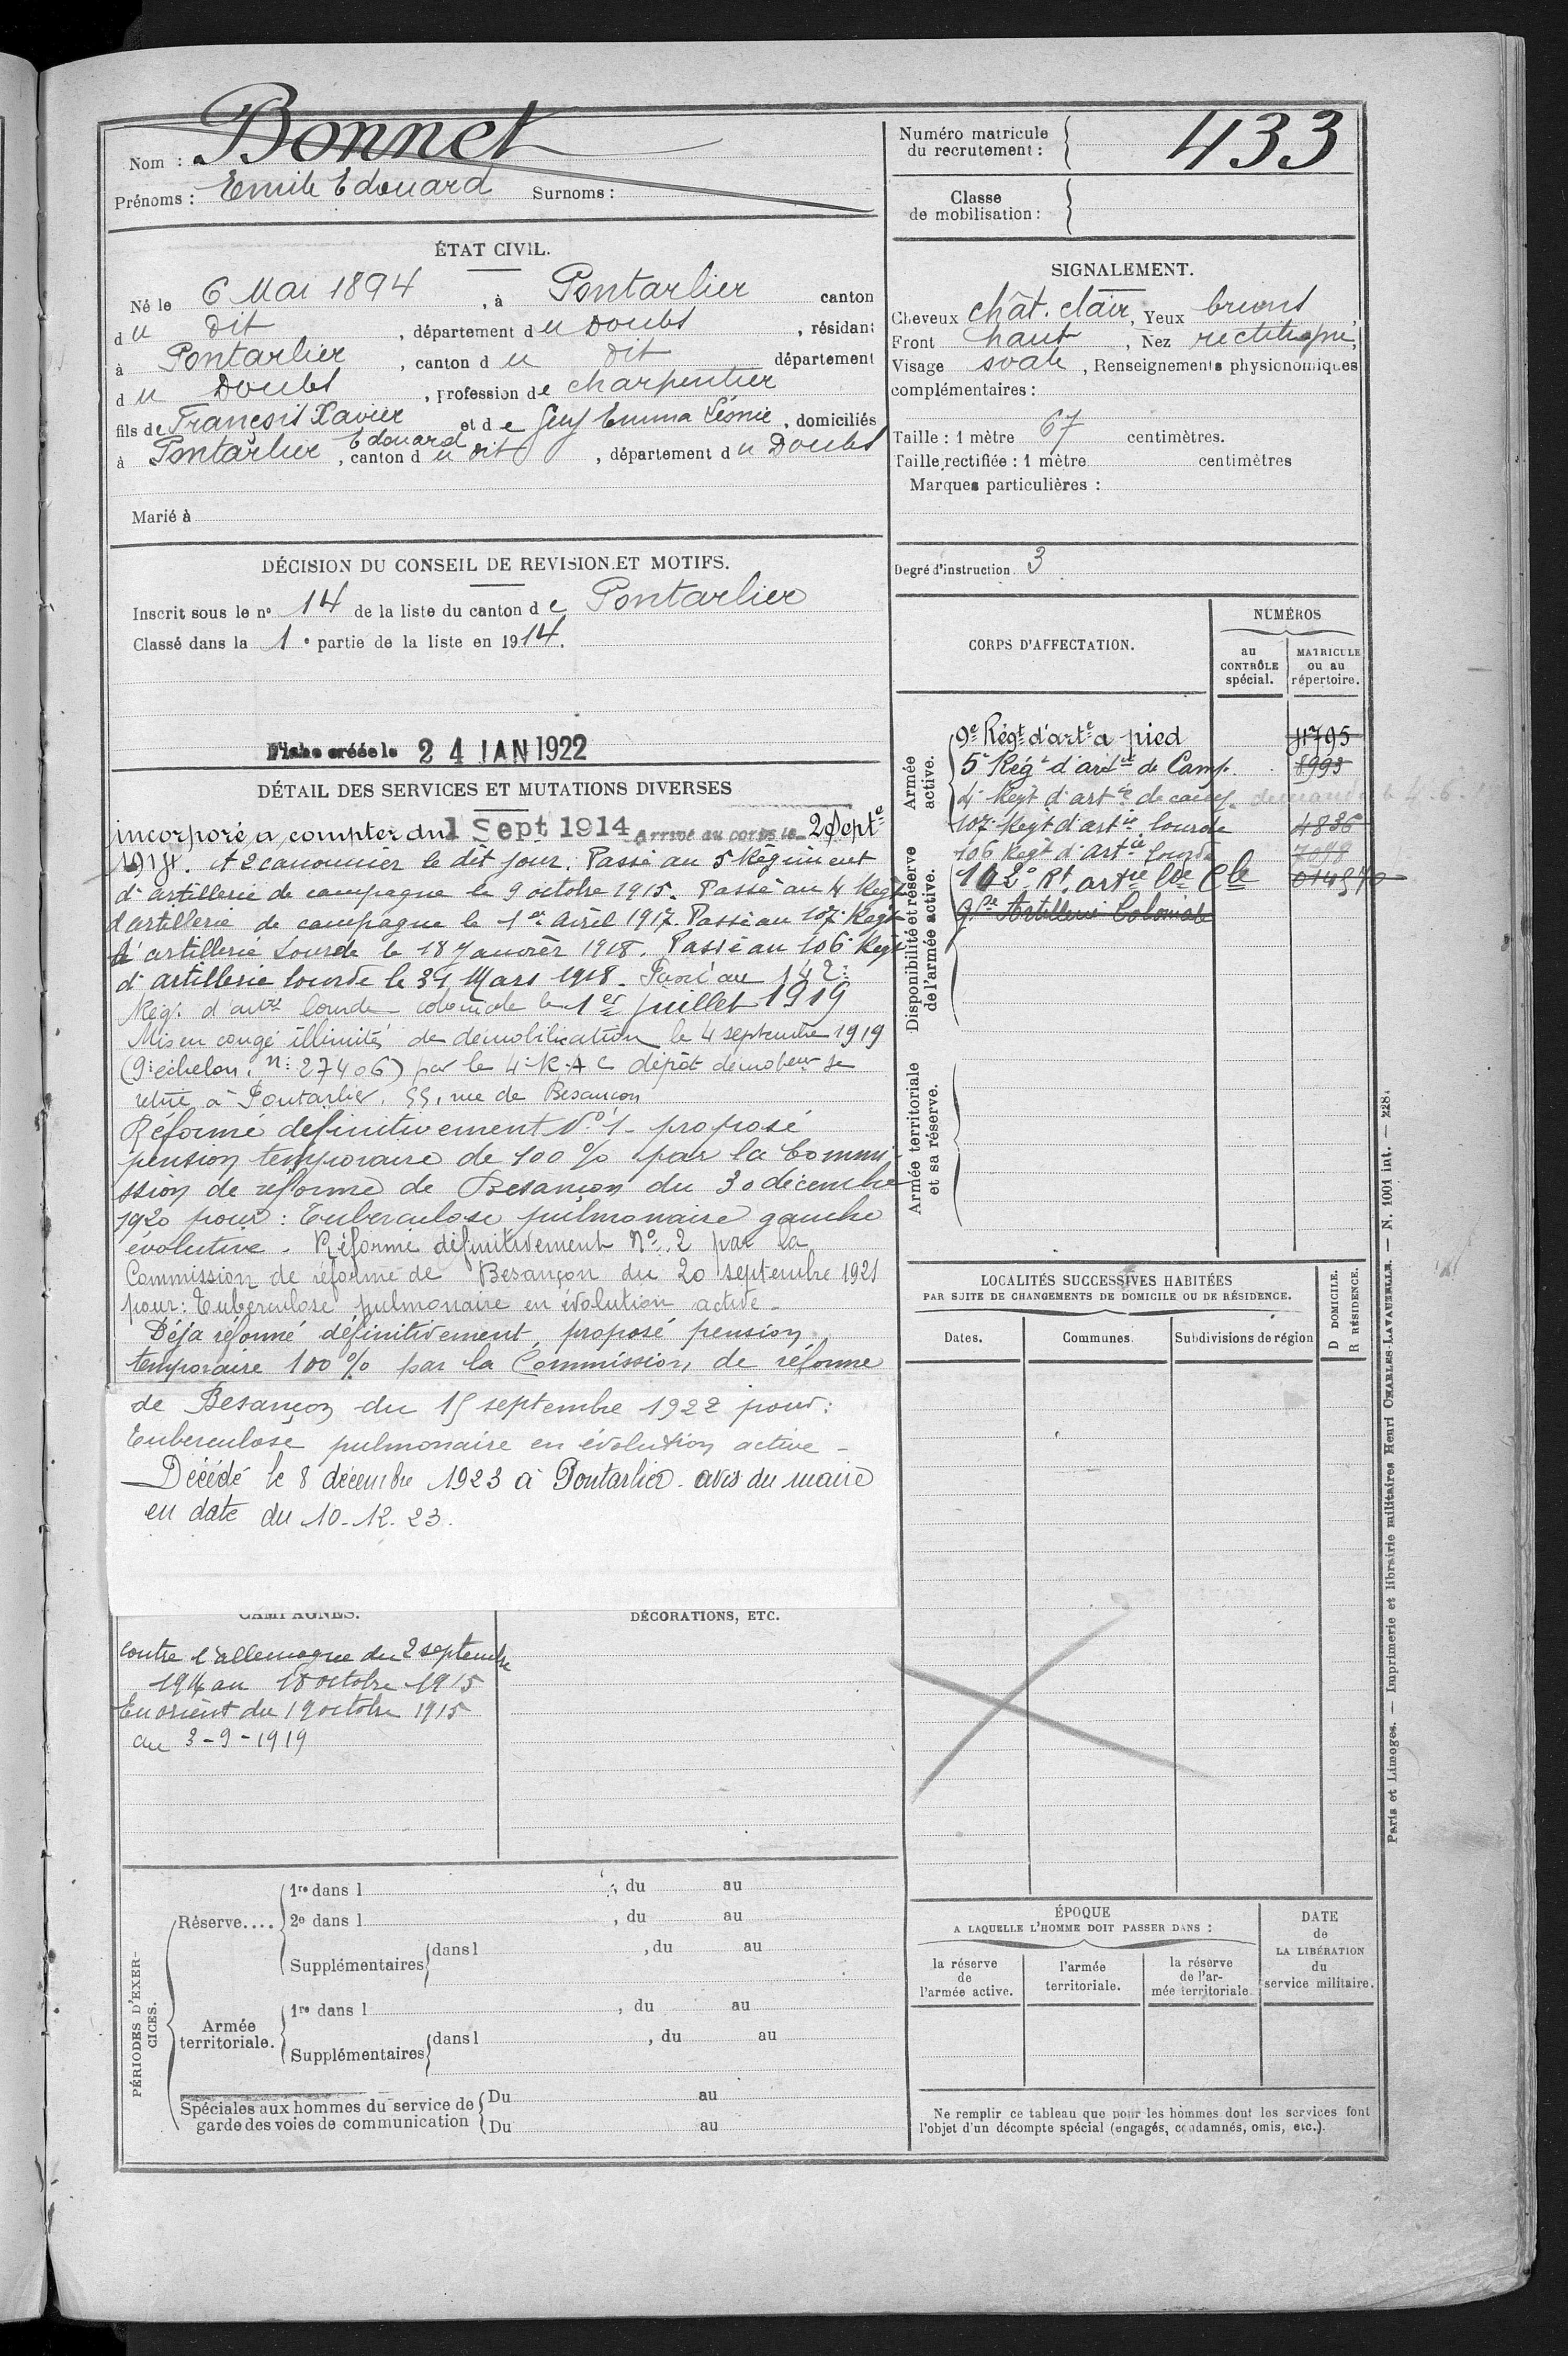 Nom : Bonnet
Prénoms : Emile Edouard Surnoms :
ÉTAT CIVIL.
Né le 6 Mai 1894, à Pontarlier canton
du dit, département du Doubs, résidant
à Pontarlier, canton du dit département
du Doubs, profession de charpentier
fils de François Xavier Edouard et de Emma Léonie, domiciliés
à Pontarlier, canton du dit, département du Doubs
Marié à
DÉCISION DU CONSEIL DE REVISION ET MOTIFS.
Inscrit sous le n° 14 de la liste du canton de Pontarlier
Classé dans la 1e partie de la liste en 1914.
Fiche créée le 24 JAN 1922
DÉTAIL DES SERVICES ET MUTATIONS DIVERSES
incorporé à compter du 1 Sept 1914 Arrivé au corps le 2 Septe
1914. et 2 canonnier le dit jour. Passé au 5 Régiment
d'artillerie de campagne le 9 octobre 1915. Passé au 4 Regt
d'artillerie de campagne le 1er Avril 1917. Passé au 107e Regt
d'artillerie Lourde le 18 Janvier 1918. Passé au 106e Regt
d'artillerie lourde le 31 Mars 1918. Passé au 142e
Régt d'artie lourde coloniale le 1er juillet 1919
Mis en congé illimité de démobilisation le 4 septembre 1919
(9e échelon, n° 27406) par le 4e R.A.C dépôt démobeur se
retire à Pontarlier, 55, rue de Besançon
Réformé définitivement N° 1 - proposé
pension temporaire de 100 % par la Commi-
ssion de réforme de Besançon du 30 décembre
1920 pour : Tuberculose pulmonaire gauche
évolutive. Réformé définitivement N° 2 par la
Commission de réforme de Besançon du 20 septembre 1921
pour : Tuberculose pulmonaire en évolution active -
Déjà réformé définitivement, proposé pension
temporaire 100 % par la Commission de réforme
de Besançon du 15 septembre 1922 pour :
Tuberculose pulmonaire en évolution active -
Décédé le 8 décembre 1923 à Pontarlier. avis du maire
en date du 10-12-23.
CAMPAGNES.
contre l'allemagne du 2 septembre
1914 au 18 octobre 1915
En orient du 19 octobre 1915
au 3-9-1919
DÉCORATIONS, ETC.
PÉRIODES D'EXERCICES.
Réserve....
1re dans l , du au
2e dans l , du au
Supplémentaires dans l , du au
Armée territoriale.
1re dans l , du au
Supplémentaires dans l , du au
Spéciales aux hommes du service de
garde des voies de communication
Du au
Du au
Numéro matricule
du recrutement : 433
Classe
de mobilisation :
SIGNALEMENT.
Cheveux chât. clair, Yeux bruns,
Front haut, Nez rectiligne,
Visage ovale, Renseignements physionomiques
complémentaires :
Taille : 1 mètre 67 centimètres.
Taille rectifiée : 1 mètre centimètres
Marques particulières :
Degré d'instruction 3
CORPS D'AFFECTATION.
NUMÉROS
au
CONTRÔLE
spécial.
MATRICULE
ou au
répertoire.
Armée
active.
Disponibilité et réserve
de l'armée active.
Armée territoriale
et sa réserve.
9e Régt d'arte à pied 4795
5e Régt d'artie de Camp. 8993
4e Regt d'artie de camp.
107e Regt d'artie lourde 4836
106 Regt d'artie lourde 7098
142e Rt artie lde Cle
Artillerie Coloniale
LOCALITÉS SUCCESSIVES HABITÉES
PAR SUITE DE CHANGEMENTS DE DOMICILE OU DE RÉSIDENCE.
Dates.
Communes.
Subdivisions de région
D DOMICILE.
R RÉSIDENCE.
ÉPOQUE
A LAQUELLE L'HOMME DOIT PASSER DANS :
la réserve
de
l'armée active.
l'armée
territoriale.
la réserve
de l'ar-
mée territoriale
DATE
de
LA LIBÉRATION
du
service militaire.
Ne remplir ce tableau que pour les hommes dont les services font
l'objet d'un décompte spécial (engagés, condamnés, omis, etc.).
Paris et Limoges. — Imprimerie et librairie militaires Henri CHARLES-LAVAUZELLE. — N. 1001 int. —